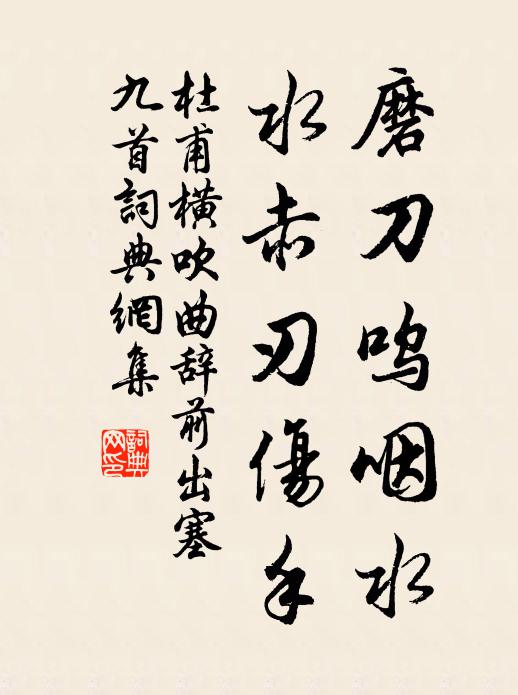 磨刀呜咽水
水赤刃傷手
杜甫横吹曲辞前出塞
九首詞典網集
詞典
网印